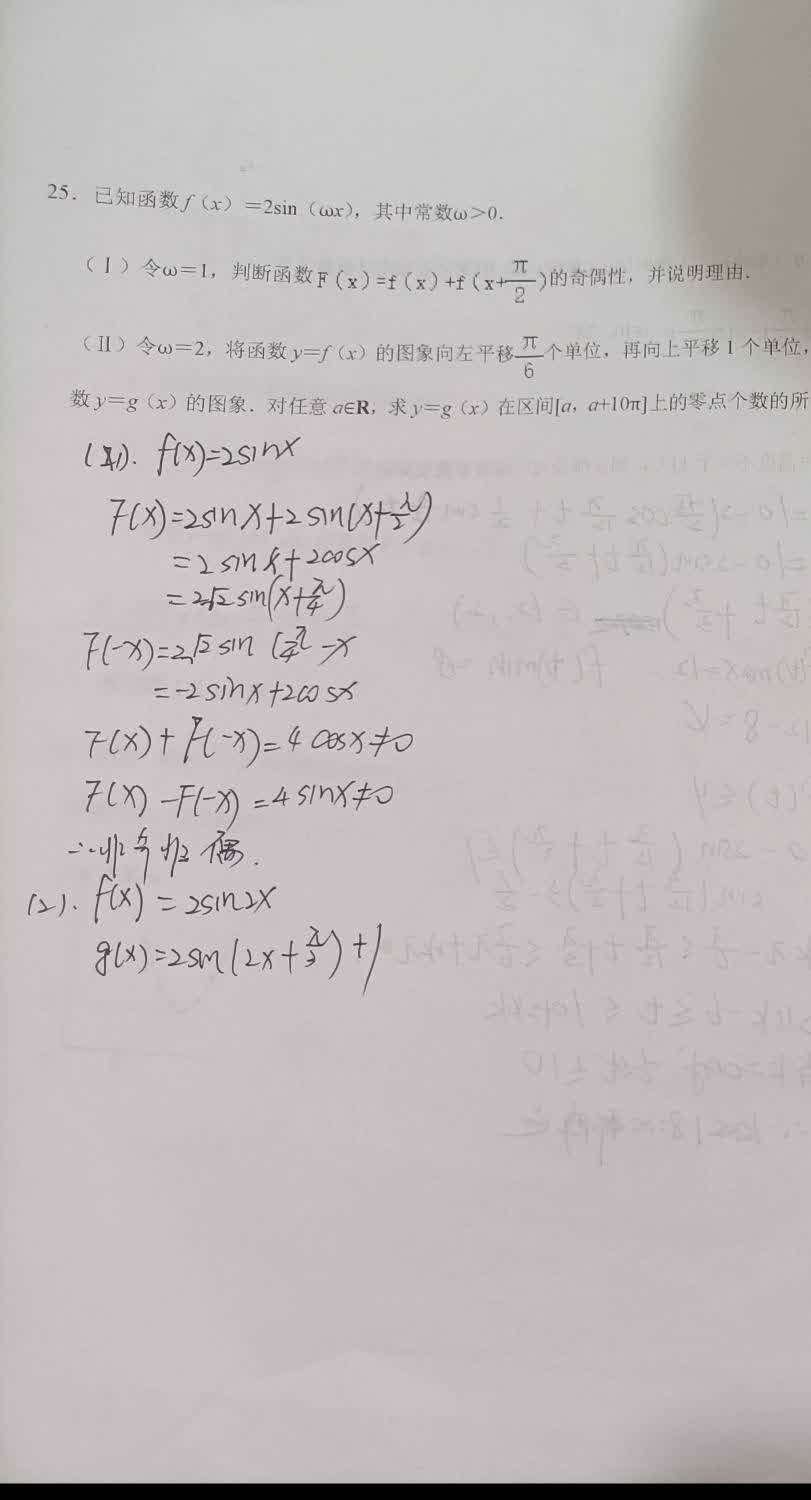 25．已知函数 f（x）=2sin（ωx），其中常数ω>0．
（Ⅰ）令ω=1，判断函数F(x)=f(x)+f(x+π/2)的奇偶性，并说明理由．
（Ⅱ）令ω=2，将函数 y=f（x）的图象向左平移π/6个单位，再向上平移 1 个单位，
数 y=g（x）的图象．对任意 a∈R，求 y=g（x）在区间[a，a+10π]上的零点个数的所
(1). f(x)=2sinx
F(x)=2sinx+2sin(x+π/2)
=2sinx+2cosx
=2√2sin(x+π/4)
F(-x)=2√2sin(π/4-x
=-2sinx+2cosx
F(x)+F(-x)=4cosx≠0
F(x)-F(-x)=4sinx≠0
∴非奇非偶.
(2). f(x)=2sin2x
g(x)=2sin(2x+π/3)+1